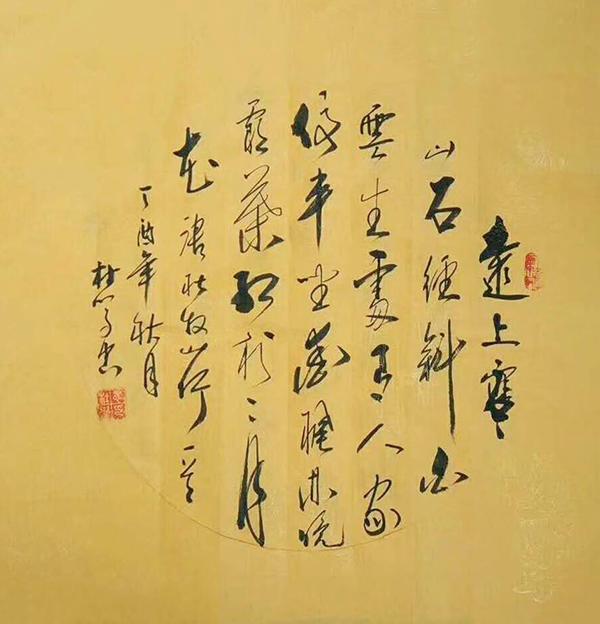 遠上寒
山石徑斜白
雲生處有人家
停車坐愛楓林晚
霜葉紅於二月
花 杜牧山行一首
丁酉年秋月